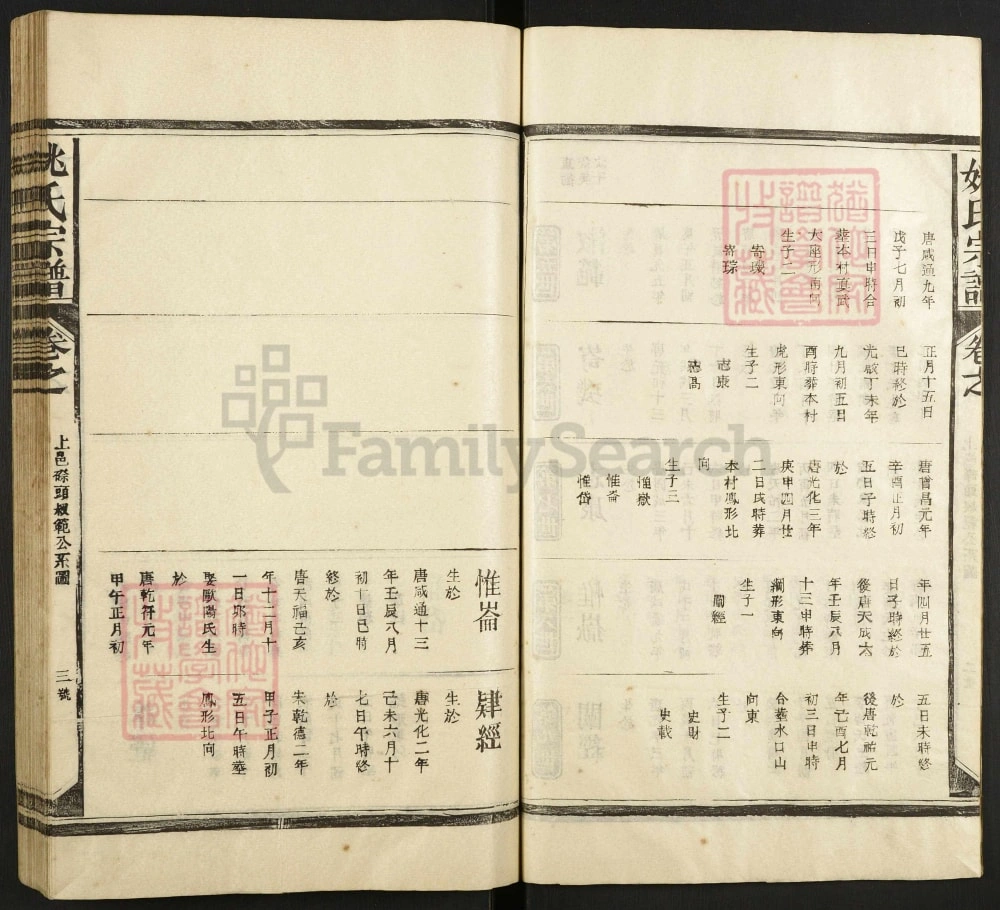 姚氏宗譜
卷之
唐咸通九年
戊子七月初
三日申時合
葬本村夏武
大座形南向
生子二
寄璣
寄琮
正月十五日
巳時終於
光啟丁未年
九月初五日
酉時葬本村
虎形東向
生子二
志東
志高
唐會昌元年
辛酉正月初
五日子時終
於
唐光化三年
庚申四月廿
二日戌時葬
本村鳳形北
向
生子三
惟嶽
惟崙
惟岱
年四月廿五
日子時終於
後唐天成六
年壬辰八月
十三申時葬
獅形東向
生子一
闢經
五日未時終
於
後唐乾祐元
年己酉七月
初三日申時
合葬水口山
向東
生子二
史財
史載
惟崙
生於
唐咸通十三
年壬辰八月
初十日巳時
終於
唐天福己亥
年十二月十
一日卯時
娶歐陽氏生
於
唐乾符元年
甲午正月初
肄經
生於
唐光化二年
己未六月十
七日午時終
於
宋乾德二年
甲子正月初
五日午時葬
鳳形北向
姚氏宗譜
卷之
上邑磜頭楓範公系圖
三號
FamilySearch